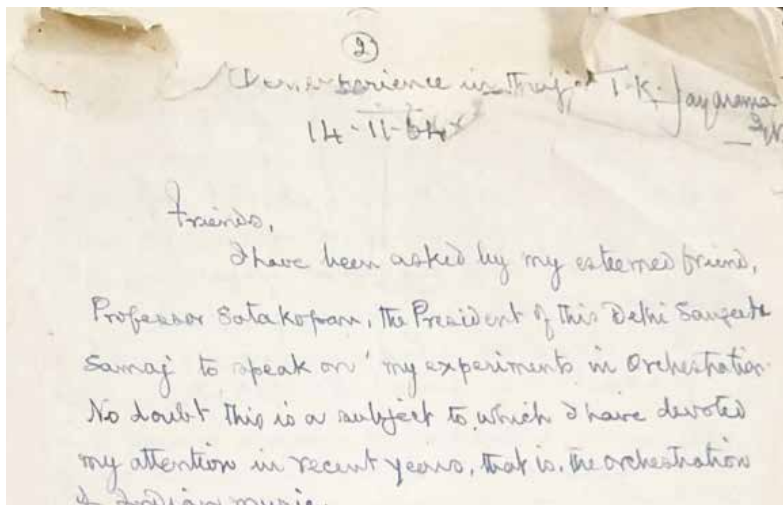 2
T.K. Jayarama
14-11-54
Friends,
I have been asked by my esteemed friend,
Professor Satakopan, the President of this Delhi Sangeeta
Samaj to speak on 'my experiments in Orchestration.
No doubt this is a subject to which I have devoted
my attention in recent years, that is, the orchestration
of Indian music.